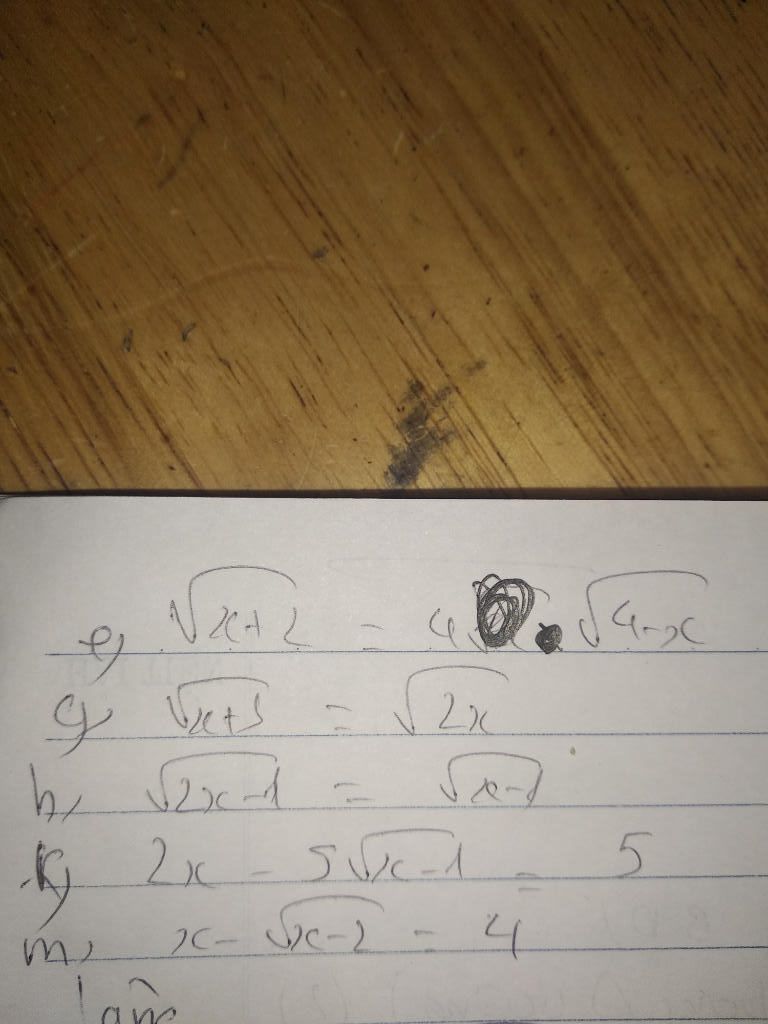 e, √x+2 = 4 . √4-x
g, √x+3 = √2x
h, √2x-1 = √x-1
k, 2x - 5√x-1 = 5
m, x - √x-2 = 4